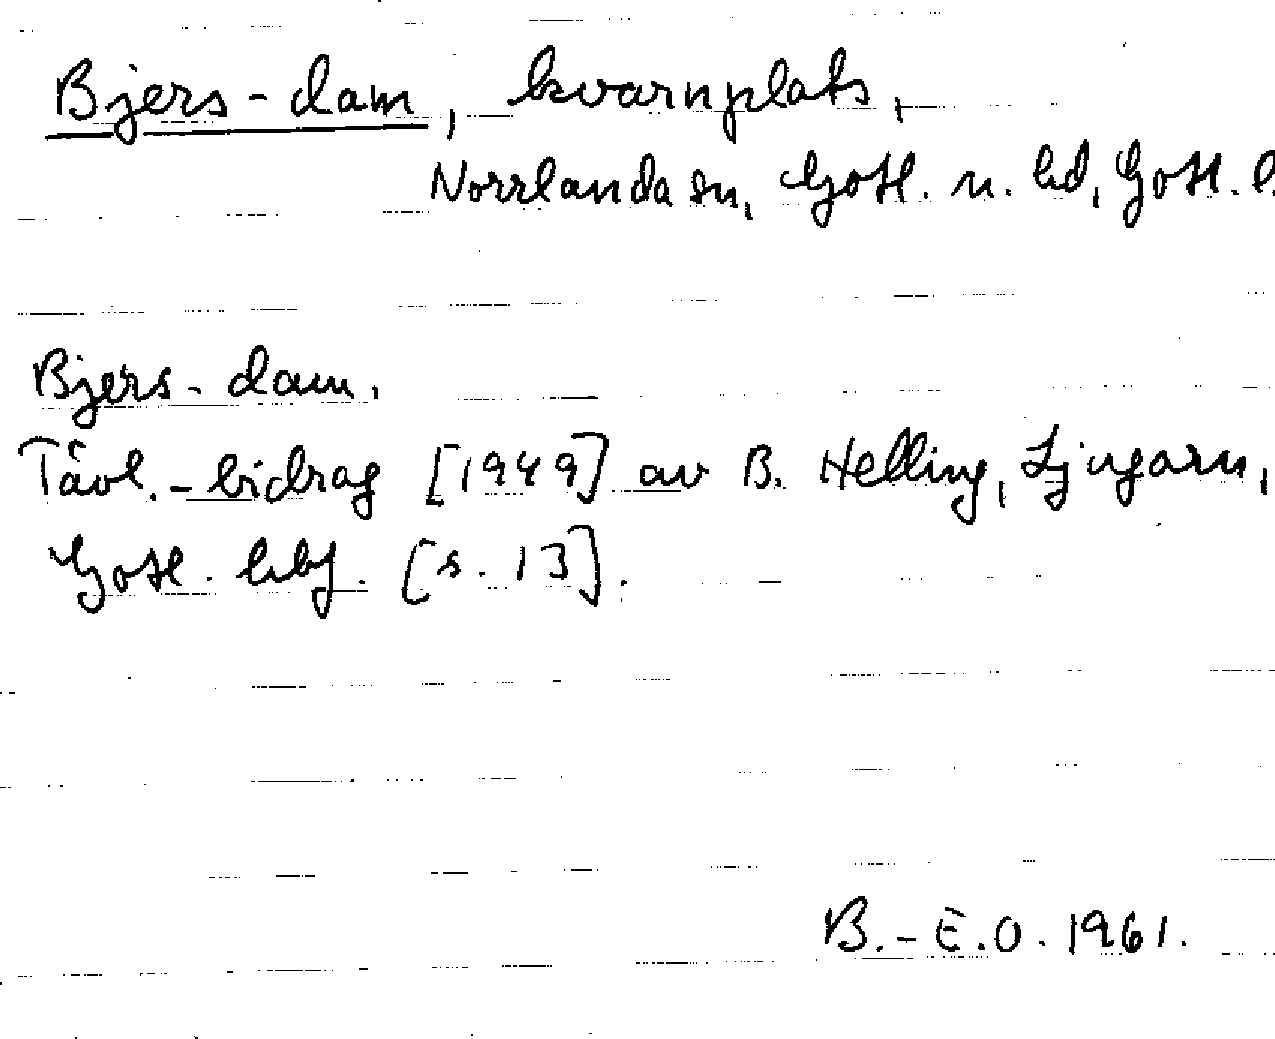 Bjers-dam, kvarnplats,
Norrlanda sn, Gotl. n. hd, Gotl. l.
Bjers-dam.
Tävl.-bidrag [1949] av B. Helling, Ljugarn,
Gotl. hbf. [s. 13].
B.-E.O. 1961.